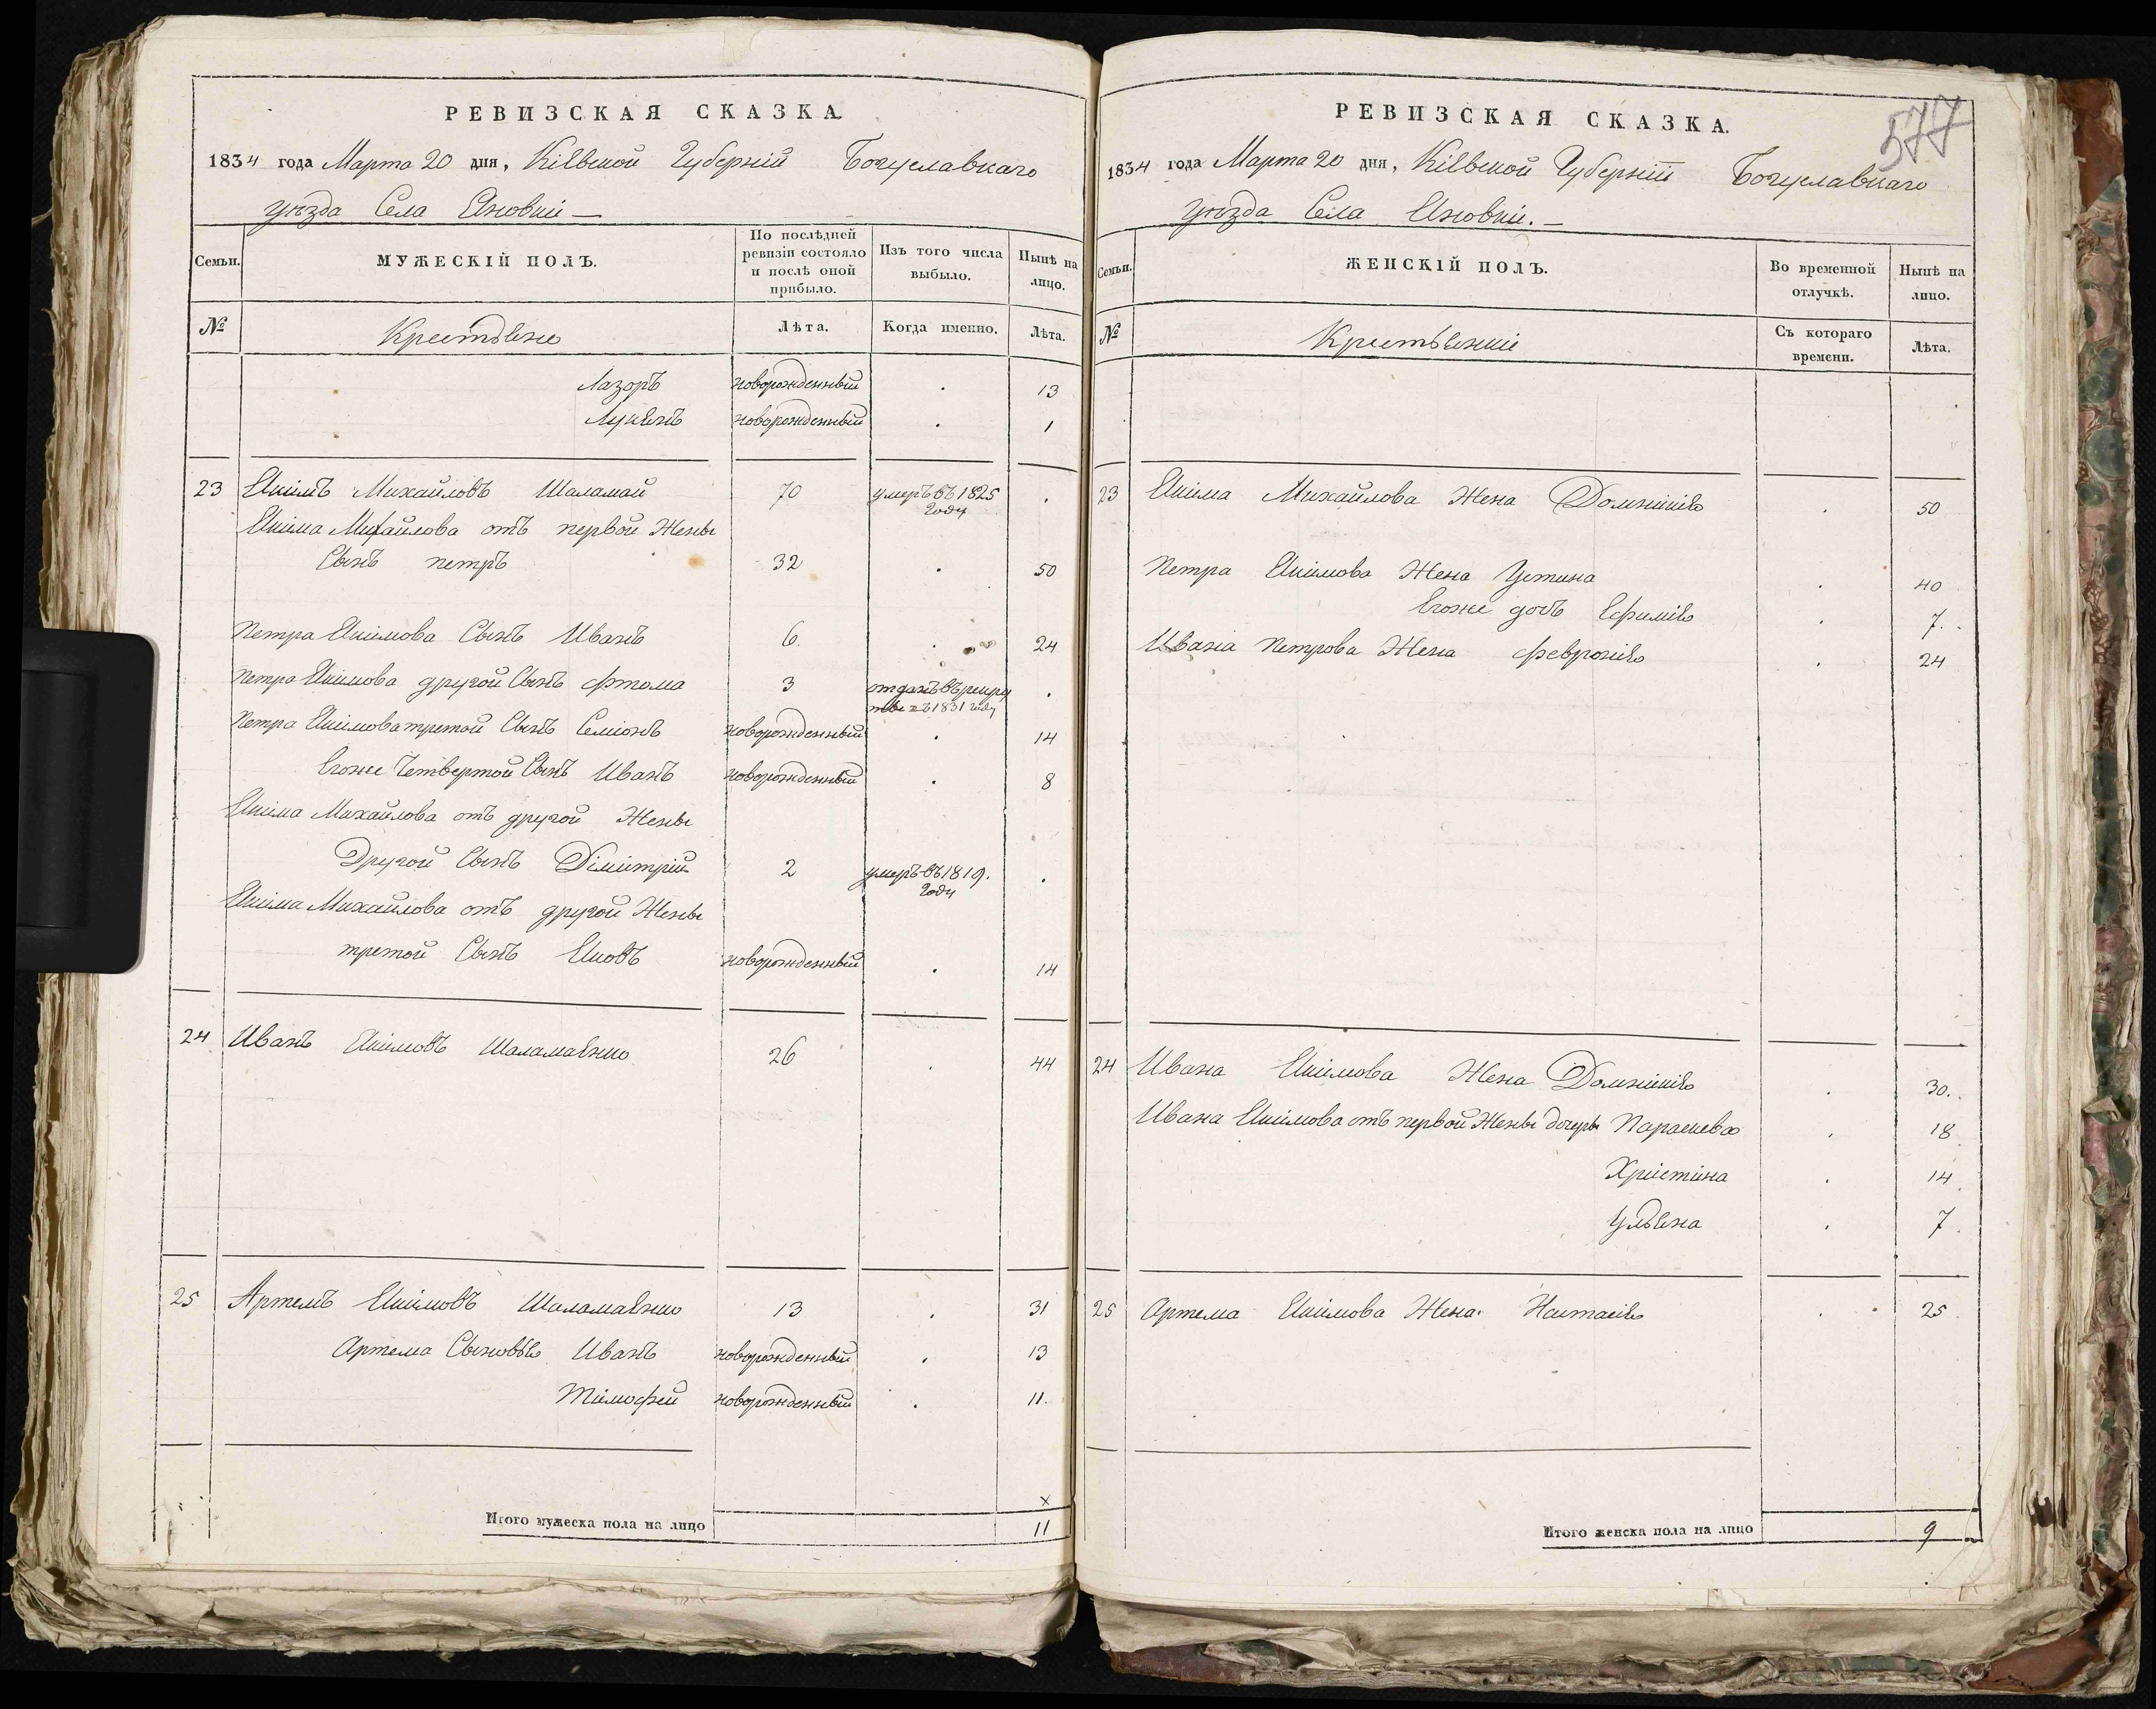 РЕВИЗСКАЯ СКАЗКА.
1834 года Марта 20 дня, Кіевской Губерніи Богуславскаго
уѣзда Села Яновки —
Семьи.
МУЖЕСКІЙ ПОЛЪ.
По послѣдней ревизіи состояло и послѣ оной прибыло.
Изъ того числа выбыло.
Нынѣ на лицо.
№ Крестьяне Лѣта. Когда именно. Лѣта.
Лазоръ новорожденный . 13
Лукянъ новорожденный . 1
23 Якимъ Михайловъ Шаламай 70 умеръ въ 1825 году .
Якима Михайлова отъ первой Жены
Сынъ петръ 32 . 50
Петра Якимова Сынъ Иванъ 6. . 24
Петра Якимова другой Сынъ Фтома 3 отданъ въ рекру тве въ 1831 году .
Петра Якимова третой Сынъ Семіонъ новорожденный . 14
Егоже Четвертой Сынъ Иванъ новорожденный . 8
Якима Михайлова отъ другой Жены
Другой Сынъ Димитрій 2 умеръ въ 1819. году .
Якима Михайлова отъ другой Жены
третой Сынъ Яковъ новорожденный . 14
24 Иванъ Якимовъ Шаламаянко 26 . 44
25 Артемъ Якимовъ Шаламаянко 13 . 31
Артема Сыновья Иванъ новорожденный . 13
Тимофей новорожденный . 11.
x
Итого мужеска пола на лицо 11
577
РЕВИЗСКАЯ СКАЗКА.
1834 года Марта 20 дня, Кіевской Губерніи Богуславскаго
уѣзда Села Яновки. —
Семьи.
ЖЕНСКІЙ ПОЛЪ.
Во временной отлучкѣ.
Нынѣ на лицо.
№ Крестьянки Съ котораго времени. Лѣта.
23 Якима Михайлова Жена Домникия . 50
Петра Якимова Жена Устина . 40
Егоже дочь Ефимия . 7.
Ивана Петрова Жена Феврония . 24
24 Ивана Якимова Жена Домникия . 30.
Ивана Якимова отъ первой Жены дочеры Параскева . 18
Христина . 14
Ульяна . 7.
25 Артема Якимова Жена Настасия . 25
Итого женска пола на лицо 9